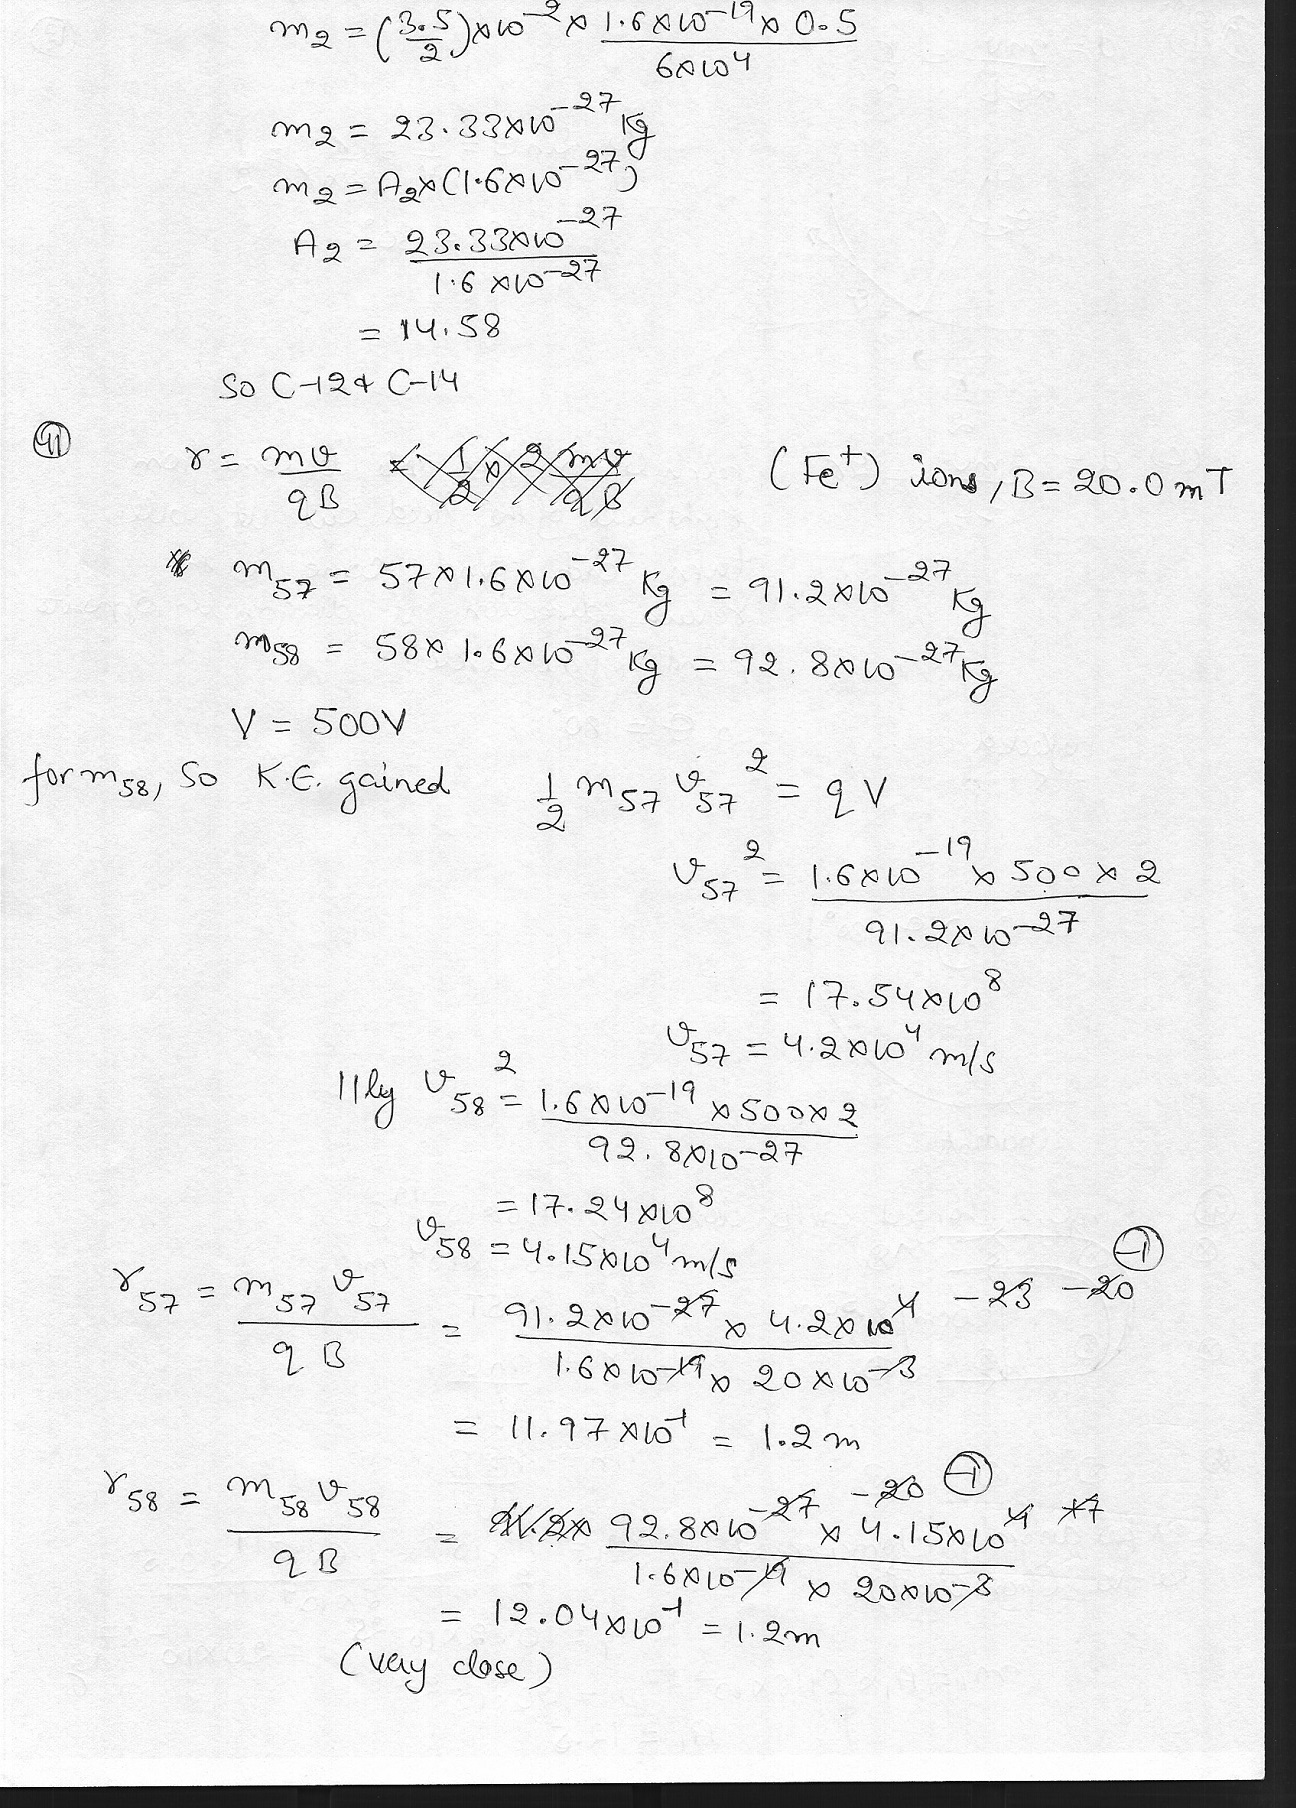 m₂ = (3.5/2)×10⁻² × (1.6×10⁻¹⁹ × 0.5)/(6×10⁴)
m₂ = 23.33×10⁻²⁷ Kg
m₂ = A₂×(1.6×10⁻²⁷)
A₂ = (23.33×10⁻²⁷)/(1.6×10⁻²⁷)
= 14.58
So C-12 & C-14
41 r = mv/qB (Fe⁺) ions, B = 20.0 mT
m₅₇ = 57×1.6×10⁻²⁷ Kg = 91.2×10⁻²⁷ Kg
m₅₈ = 58×1.6×10⁻²⁷ Kg = 92.8×10⁻²⁷ Kg
V = 500V
for m₅₈, So K.E. gained 1/2 m₅₇ v₅₇² = qV
v₅₇² = (1.6×10⁻¹⁹ × 500 × 2)/(91.2×10⁻²⁷)
= 17.54×10⁸
v₅₇ = 4.2×10⁴ m/s
||ly v₅₈² = (1.6×10⁻¹⁹ × 500×2)/(92.8×10⁻²⁷)
= 17.24×10⁸
v₅₈ = 4.15×10⁴ m/s
r₅₇ = (m₅₇ v₅₇)/(qB) = (91.2×10⁻²⁷ × 4.2×10⁴)/(1.6×10⁻¹⁹ × 20×10⁻³) -23 -20 -1
= 11.97×10⁻¹ = 1.2 m
r₅₈ = (m₅₈ v₅₈)/(qB) = 91.2× (92.8×10⁻²⁷ × 4.15×10⁴)/(1.6×10⁻¹⁹ × 20×10⁻³) -20 -1
= 12.04×10⁻¹ = 1.2m
(very close)